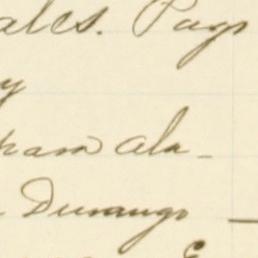 ales. Pago
y
ram ala-
Durango —